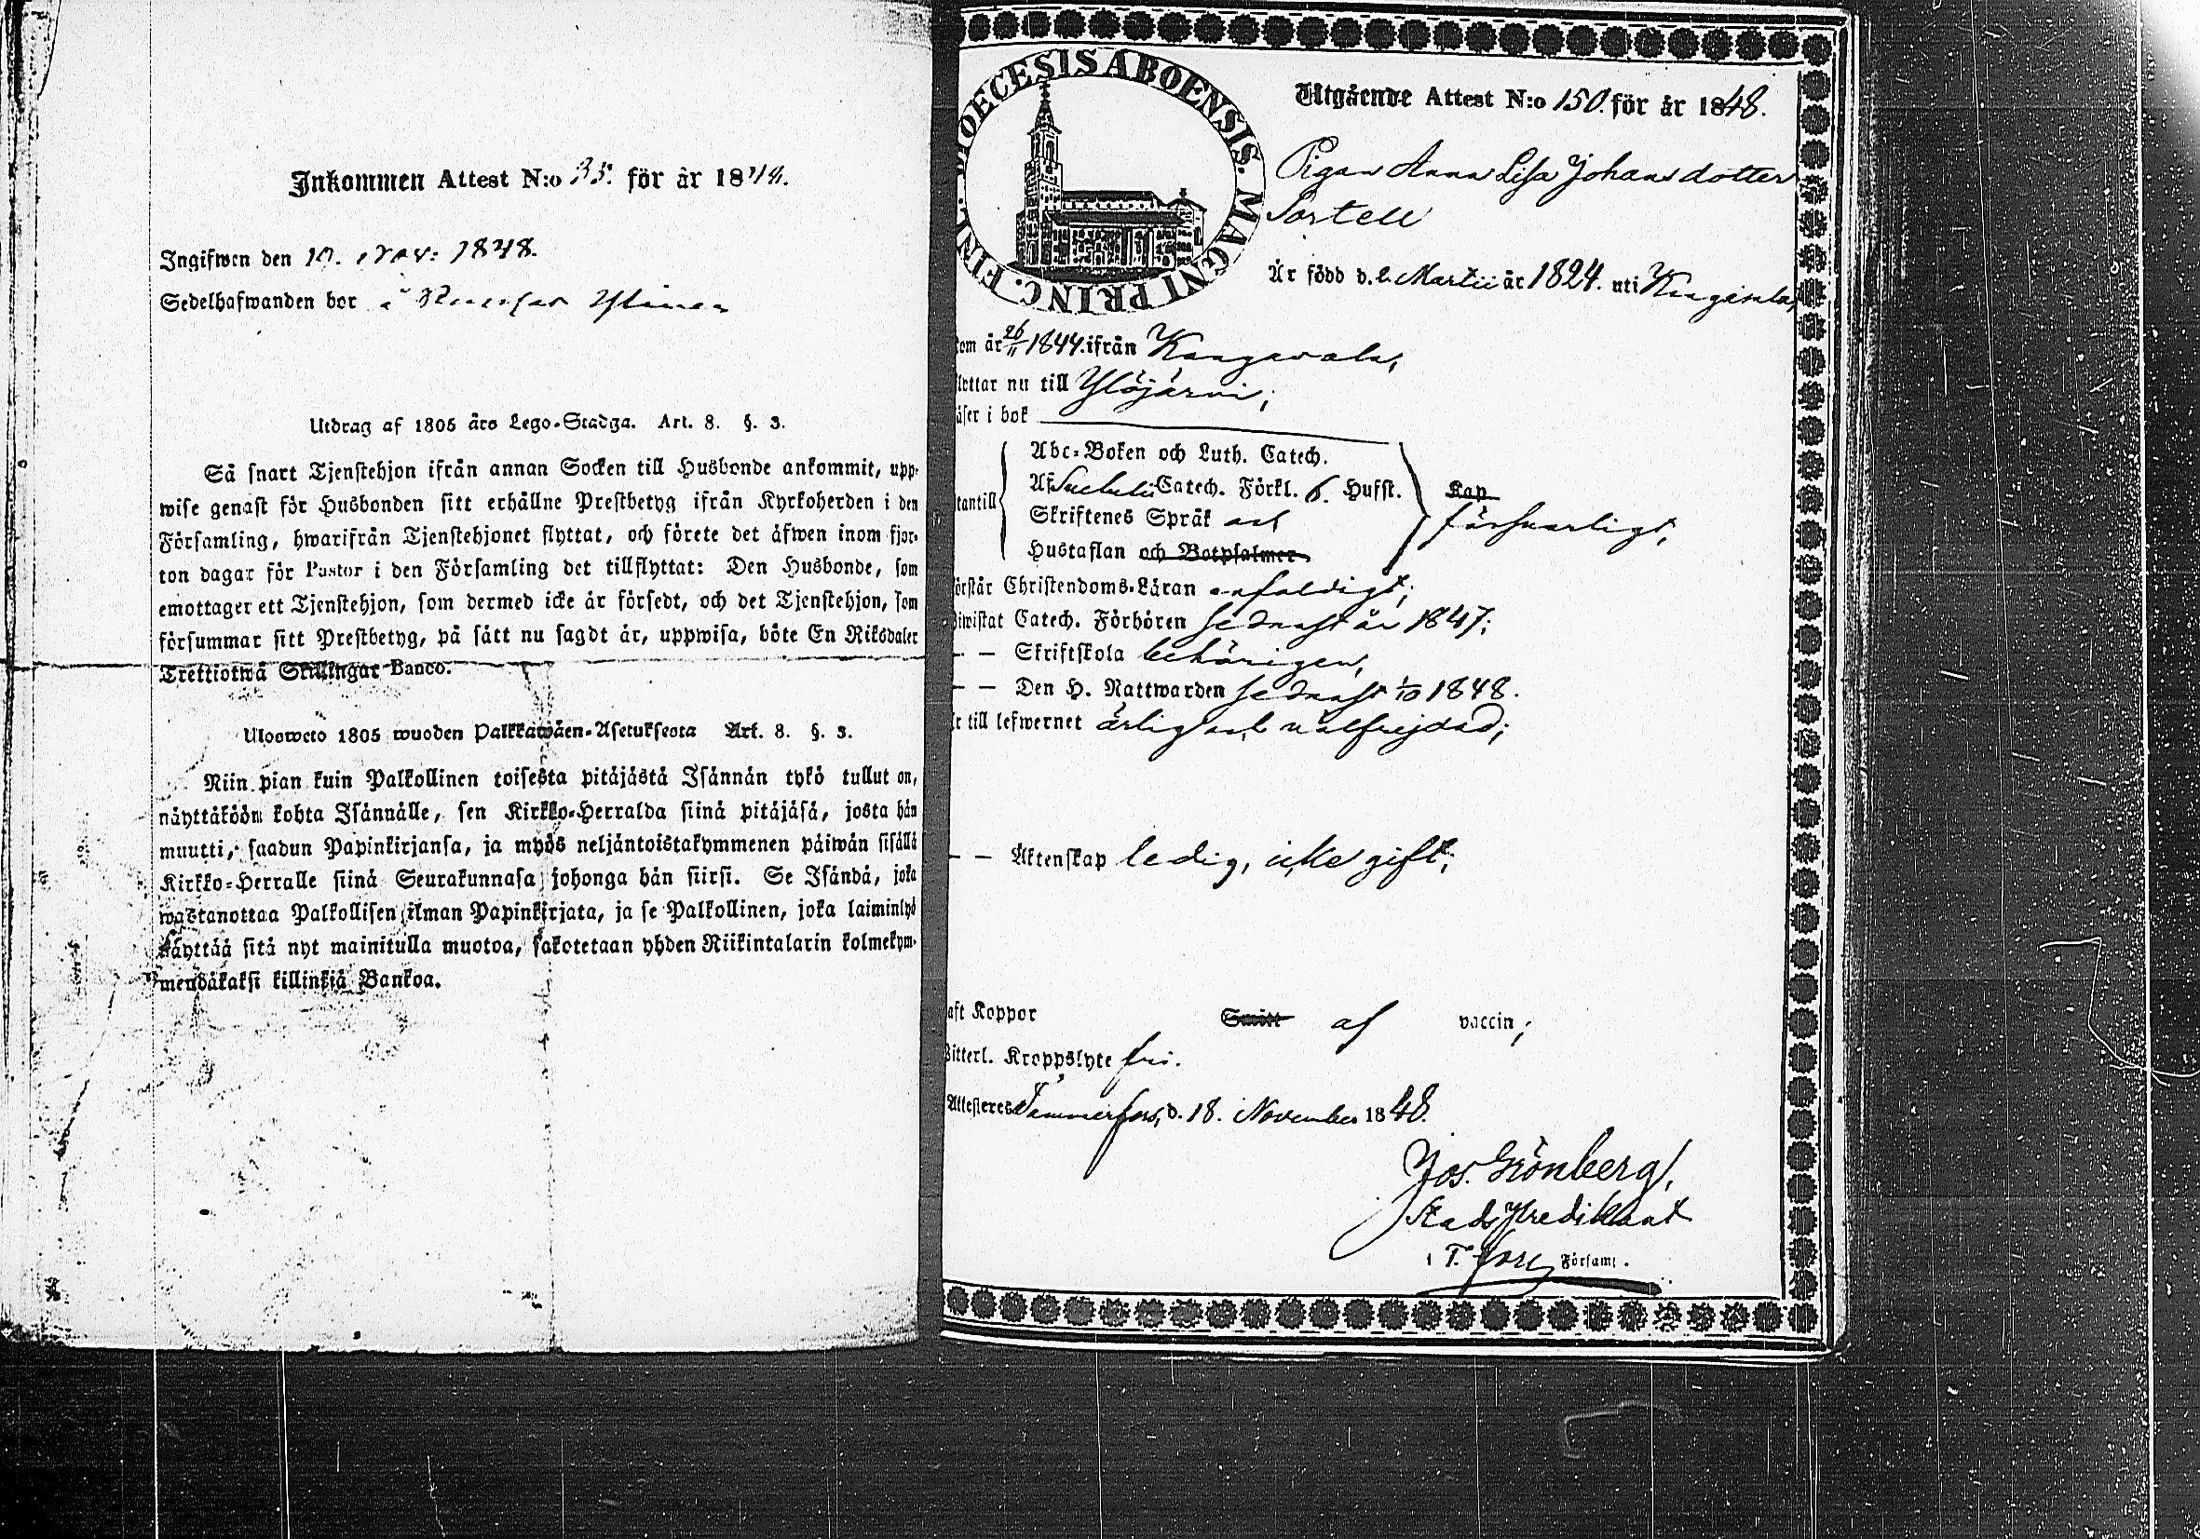 Inkommen Attest N:o 35. för år 1848.
Ingifwen den 1848.
Sedelhafwanden bor å
Utdrag af 1805 års Lego-Stadga. Art. 8. §. 3.
Så snart Tjenstehjon ifrån annan Socken till Husbonde ankommit, upp-
wise genast för Husbonden sitt erhållne Prestbetyg ifrån Kyrkoherden i den
Församling, hwarifrån Tjenstehjonet flyttat, och förete det äfwen inom fjor-
ton dagar för Pastor i den Församling det tillflyttat: Den Husbonde, som
emottager ett Tjenstehjon, som dermed icke är försedt, och det Tjenstehjon, som
försummar sitt Prestbetyg, på sätt nu sagdt är, uppwisa, böte En Riksdaler
Trettiotwå Skillingar Banco.
Uloosweto 1805 wuoden Palkkawäen-Asetuksesta Art. 8. §. 3.
Niin pian kuin Palkollinen toisesta pitäjästä Isännän tykö tullut on,
näyttäköön kohta Isännälle, sen Kirkko-Herralda siinä pitäjäsä, josta hän
muutti, saadun Papinkirjansa, ja myös neljäntoistakymmenen päiwän sisällä
Kirkko-Herralle siinä Seurakunnasa johonga hän siirsi. Se Isändä, joka
wastanottaa Palkollisen ilman Papinkirjata, ja se Palkollinen, joka laiminlyö
näyttää sitä nyt mainitulla muotoa, sakotetaan yhden Riikintalarin kolmekym-
mendäkaksi killinkiä Bankoa.
DIOECESIS ABOENSIS. MAGNI PRINC. FINL.
Utgående Attest N:o 150. för år 1848.
Pigan Anna Lisa Johansdotter
Sortell
Är född d. 2 Martii år 1824. uti
kom år 26/11 1844. ifrån Kangasala,
flyttar nu till Ylöjärvi;
läser i bok
utantill
Abc-Boken och Luth. Catech.
Af Svebelii Catech. Förkl. 6. Hufst. Kap
Skriftenes Språk och försvarligt;
Hustaflan och Botpsalmer
förstår Christendoms-Läran enfaldigt;
biwistat Catech. Förhören sednast år 1847;
— — Skriftskola behörigen,
— — Den H. Nattwarden sednast 1/10 1848.
är till lefwernet ärlig och välfrejdad;
— — Äktenskap ledig, icke gift;
haft Koppor Smitt af vaccin;
Witterl. Kroppslyte fri.
Attesteres Tammerfors, d. 18. November 1848.
Jos. Grönberg,
Stads Predikant
i T.fors Församl.